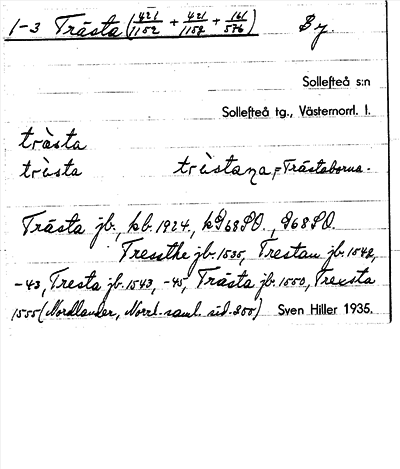 1-3 Trästa (421/1152 + 421/1152 + 161/576) By.
Sollefteå s:n
Sollefteå tg., Västernorrl. l.
trästa
trästa trästana, = Trästaborna.
Trästa jb., kb. 1924, kG68SO., G68SO.
Tressthe jb. 1535, Trestau jb. 1542,
-43, Tresta jb. 1543, -45, Trästa jb. 1550, Trexsta
1555 (Nordlander, Norrl. saml. sid. 200) Sven Hiller 1935.